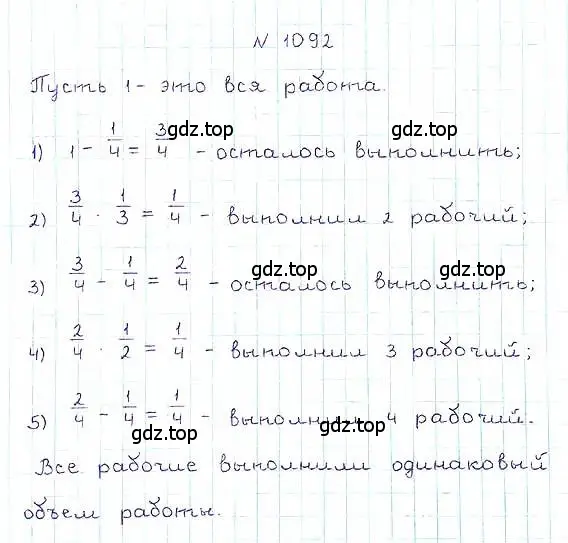 № 1092
Пусть 1 - это вся работа.
1) 1 - 1/4 = 3/4 - осталось выполнить;
gdz.top
gdz.top
2) 3/4 · 1/3 = 1/4 - выполнил 2 рабочий;
3) 3/4 - 1/4 = 2/4 - осталось выполнить;
gdz.top
gdz.top
4) 2/4 · 1/2 = 1/4 - выполнил 3 рабочий;
5) 2/4 - 1/4 = 1/4 - выполнил 4 рабочий.
gdz.top
gdz.top
Все рабочие выполнили одинаковый
объем работы.